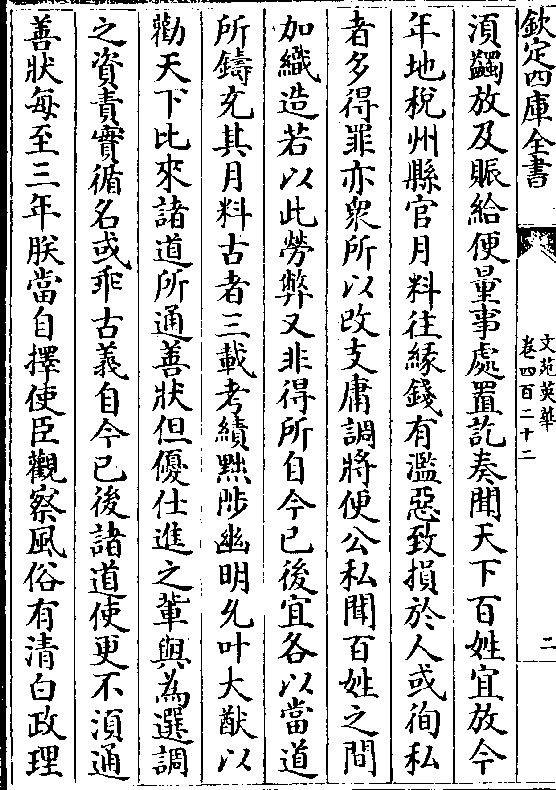 欽定四庫全書
文苑英華
卷四百二十二
二
須蠲放及賑給便量事處置訖奏聞天下百姓宜放今
年地稅州縣官月料往緣錢有濫惡致損於人或徇私
者多得罪亦衆所以改支庸調將便公私聞百姓之間
加織造若以此勞弊又非得所自今已後宜各以當道
所鑄充其月料古者三載考績黜陟幽明允叶大猷以
勸天下比來諸道所通善狀但優仕進之輩與為選調
之資責實循名或乖古義自今已後諸道使更不須通
善狀每至三年朕當自擇使臣觀察風俗有清白政理